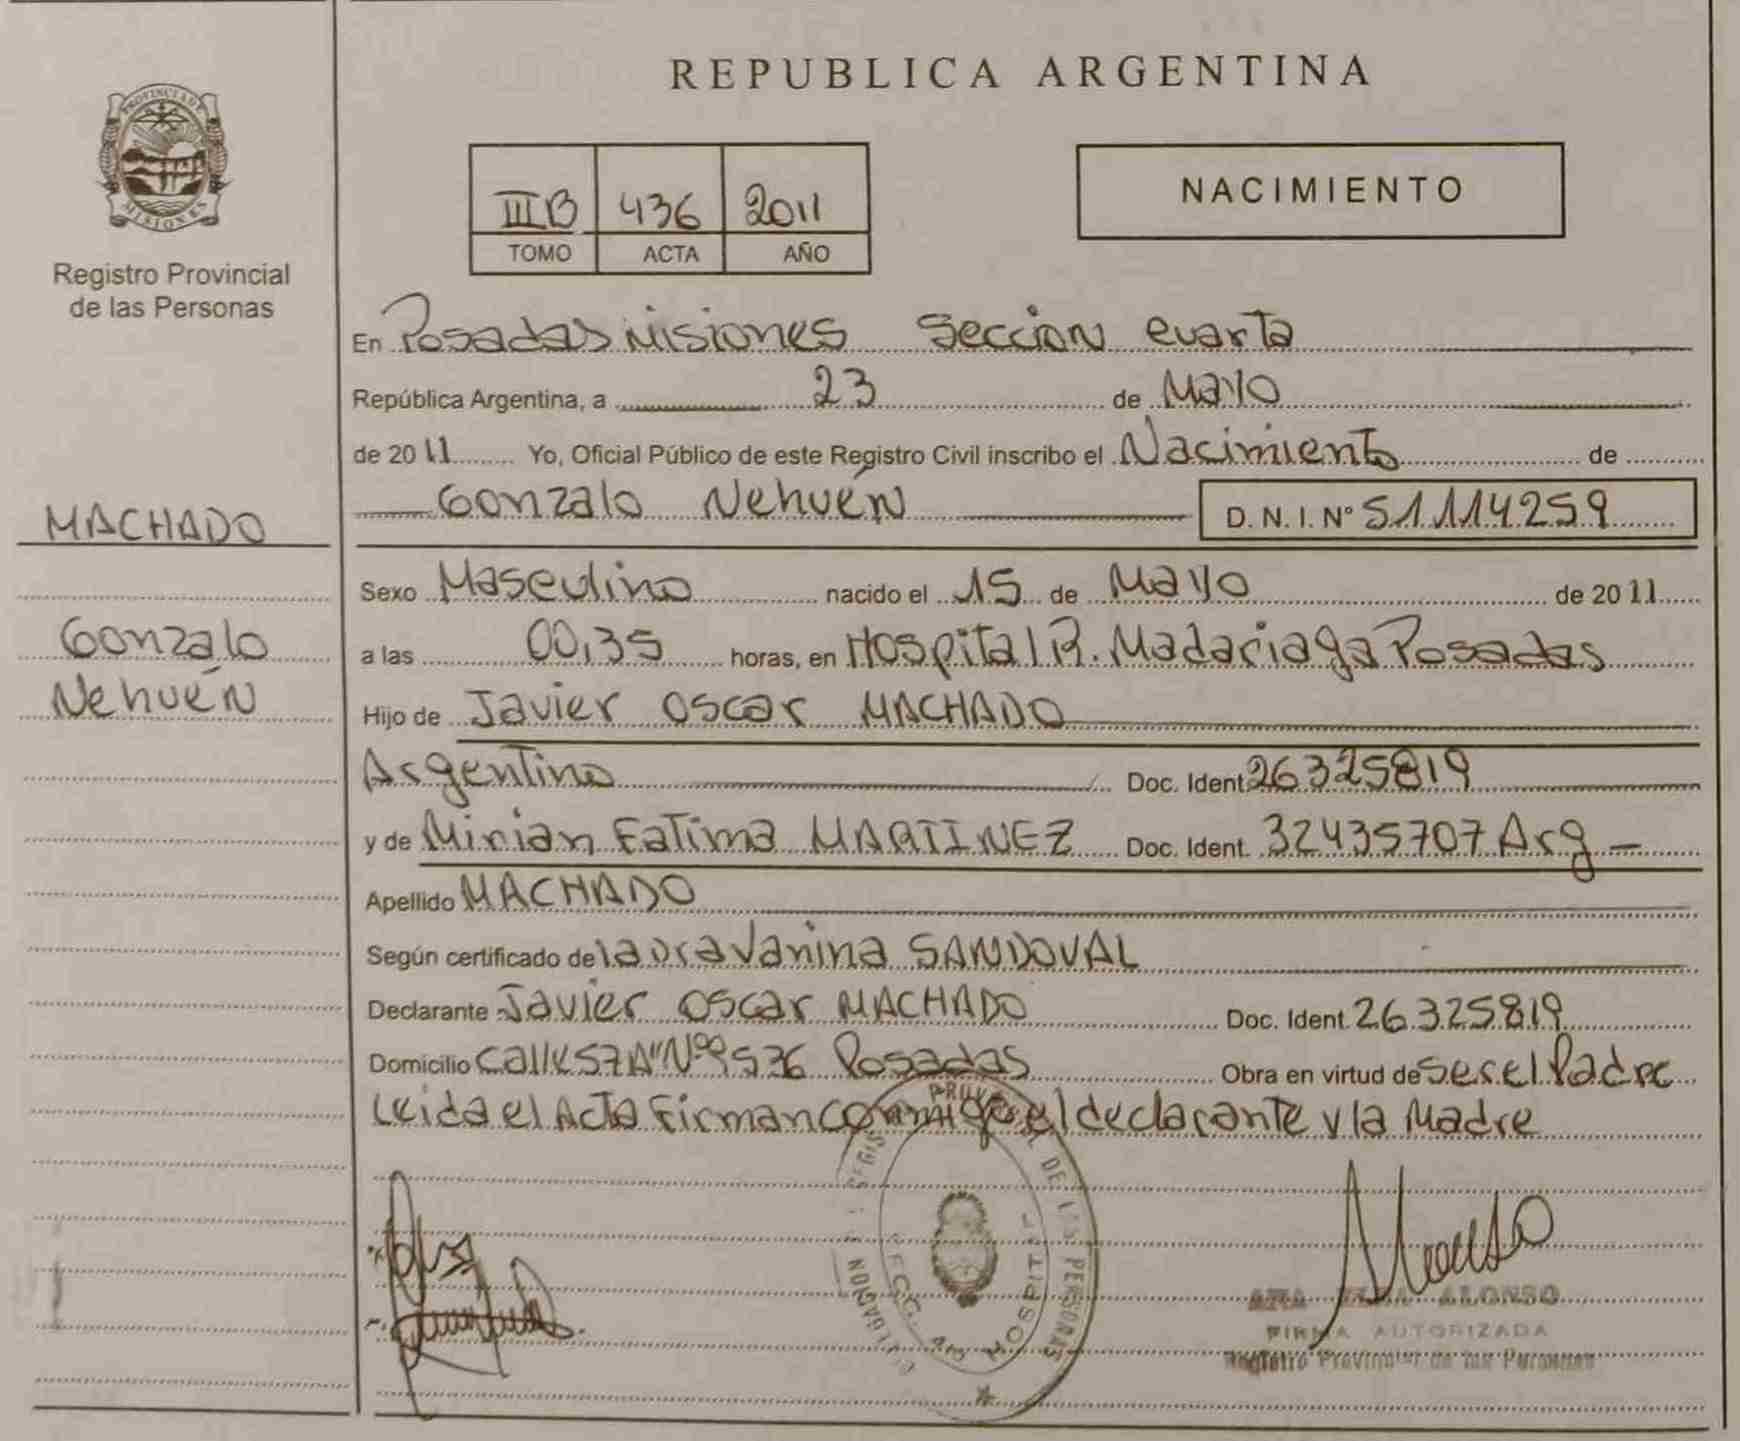 PROVINCIA DE
MISIONES
Registro Provincial
de las Personas
MACHADO
Gonzalo
Nehuén
REPUBLICA ARGENTINA
III B 436 2011
TOMO ACTA AÑO
NACIMIENTO
En Posadas Misiones Seccion cuarta
República Argentina, a 23 de Mayo
de 2011 Yo, Oficial Público de este Registro Civil inscribo el Nacimiento de
Gonzalo Nehuén D. N. I. N° 51.114.259
Sexo Masculino nacido el 15 de Mayo de 2011
a las 00,35 horas, en Hospital R. Madariaga Posadas
Hijo de Javier Oscar MACHADO
Argentino Doc. Ident. 26325819
y de Mirian Fatima MARTINEZ Doc. Ident. 32435707 Arg –
Apellido MACHADO
Según certificado de laura Vanina SANDOVAL
Declarante Javier Oscar MACHADO Doc. Ident. 26.325.819
Domicilio Calle 57 A" Nº 9536 Posadas Obra en virtud de ser el Padre
Leida el Acta Firman conmigo el declarante y la Madre
DE LAS PERSONAS
HOSPITAL
ALONSO
FIRMA AUTORIZADA
Registro Provincial de las Personas